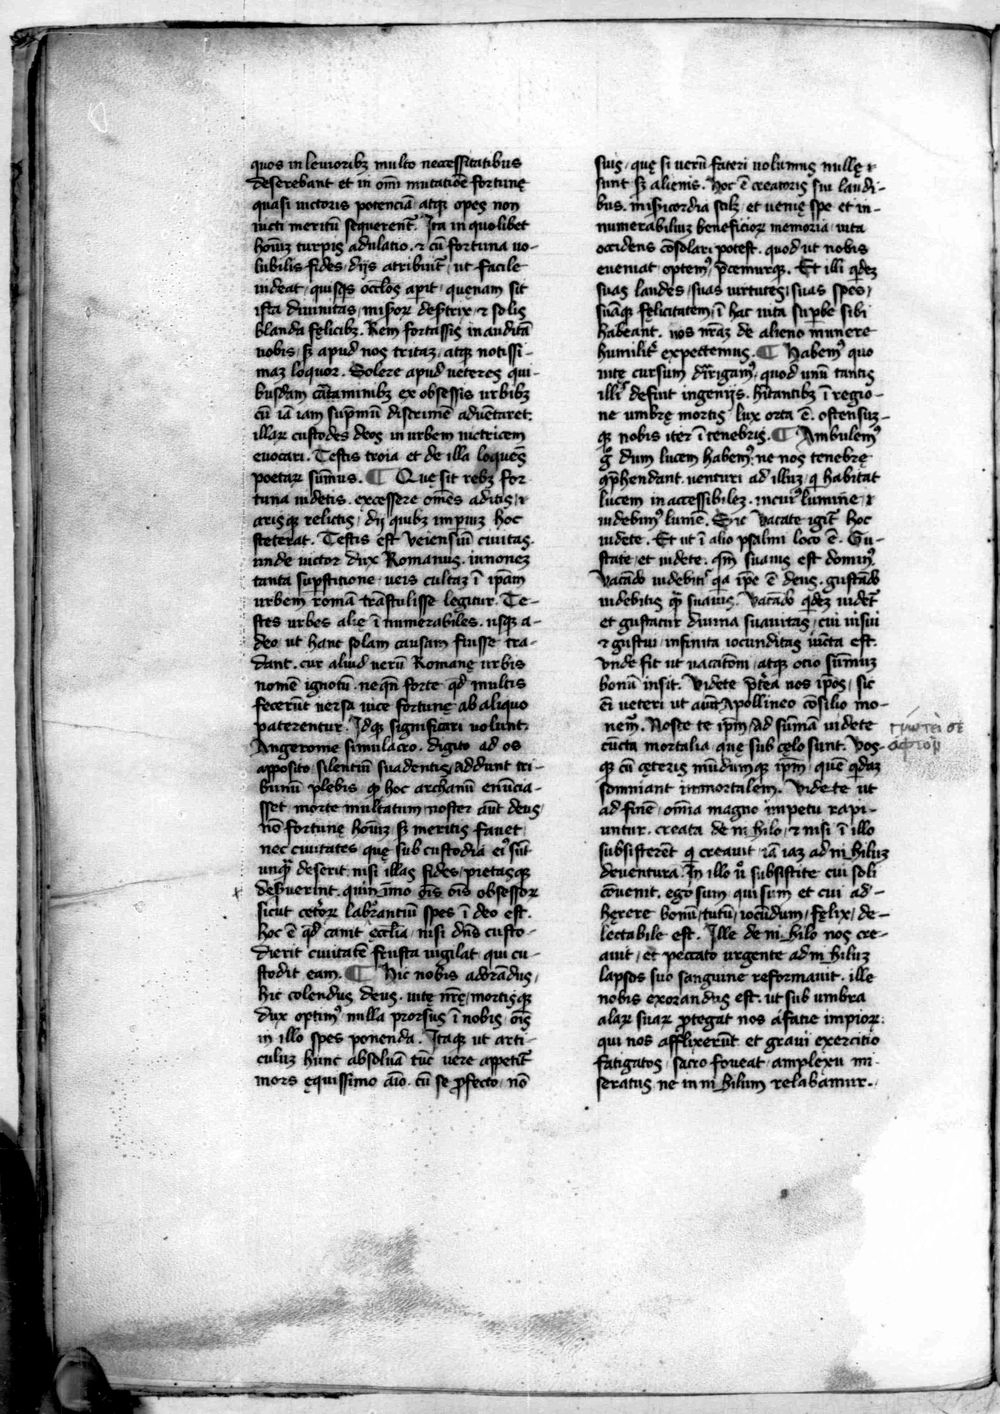 quos in leuioribꝫ multo necessitatibus
deserebant et in om̄i mutatiōe fortunę
quasi uictoris potenciā atqꝫ opes non
uicti meritū sequerent᷑. Ita in quolibet
hoīuꝫ turpis adulatio. ⁊ cū fortuna uo-
lubilis fides, dijs atribuit᷑, ut facile
uideat, quisqs oc̄los aperit, quęnam sit
ista diuinitas, miseror desertrix, ⁊ solis
blanda fęlicibꝫ. Rem fortassis in auditā
uobis, sꝫ apud nos tritaꝫ, atqꝫ notissi-
maꝫ loquor. Solere apud ueteres qui-
busdam cātaminibꝫ ex obsessis urbibꝫ
cū iā iam supremū discrimē aduētaret:
illaꝝ custodes deos in urbem uictricem
euocari. Testis troia et de illa loquēs
poetaꝝ sūmus. ¶ Que sit rebꝫ for
tuna uidetis. excessere om̄es aditis, ⁊
arisqꝫ relictis, dij quibꝫ imperiuꝫ hoc
steterat. Testis est Veiensiū ciuitas.
unde uictor dux Romanus. iunoneꝫ
tanta supstitione ueis cultaꝫ ī ip̄am
urbem romā trāstulisse legitur. Te-
stes urbes alie īnumerabiles. usqꝫ a-
deo ut hanc solam causam fuisse tra-
dant. cur aliud uerū Romane urbis
nomē ignotū. ne qn̄ forte qd̄ multis
fecerūt uersa uice fortunę ab aliquo
paterentur. Idqꝫ significari uolunt:
Angerone simulacro. digito ad os
apposito, silentiū suadentis, addunt tri-
bunū plebis qꝫ hoc archanū enūcia-
sset, morte multatum, noster aūt deus,
nō fortunę hoīuꝫ sꝫ meritis fauet,
nec ciuitates quę sub custodia eiꝰ sūt
unqᷓ deserit, nisi illas fides, pietasqꝫ
deseruerint. quin īmo oīs oīs obsessoꝝ
sicut cetoꝝ laborantiū spes ī deo est.
hoc ē qd̄ canit eccl̄ia, nisi dn̄s custo-
dierit ciuitatē frustra uigilat, qui cu-
stodit eam. ¶ Hic nobis adorādus,
hic colendus deus. uitę nr̄ę, mortisqꝫ
dux optimꝰ, nulla prorsus ī nobis, oīs
in illo spes ponenda. Itaqꝫ ut arti-
culuꝫ hunc absoluā tūc uere appetit᷑
mors ęquissimo aīo. cū se ꝓfecto, nō
suis, quę si uerū fateri uolumus nullę ⁊
sunt sꝫ alienis. hoc ē creatoris sui laudi-
bus. misericordia scilꝫ et uenię spe et in-
numerabiliuꝫ beneficioꝝ memoria, uita
occidens cōsolari potest. quod ut nobis
eueniat, optemꝰ, p̄cemurqꝫ. Et illi qdeꝫ
suas laudes, suas uirtutes, suas spes,
suāqꝫ fęlicitatem, ī hac uita superbe sibi
habeant. nos nr̄as de alieno munere
humilit᷑ expectemus. ¶ Habemꝰ quo
uite cursum dirrigamꝰ, quod unū tantis
illis defuit ingenijs. hītantibꝫ ī regio-
ne umbrę mortis lux orta ē. ostensuꝫ-
qꝫ nobis iter ī tenebris. ¶ Ambulemꝰ
gͦ dum lucem habemꝰ, ne nos tenebrę
compreħendant. uenturi ad illuꝫ, qͥ habitat
lucem in accessibileꝫ. in cuiꝰ lumine, ⁊
uidebimꝰ lumē. Sic Vacate igit᷑ hoc
uidete. Et ut ī alio psalmi loco ē. Gu-
state et uidete. qm̄ suauis est dominꝰ.
Vacādo uidebit᷑ qa ip̄e ē deus. gustādo
uidebitis qᷓ suauis. Vacādo qdeꝫ uidet᷑
et gustatur diuina suauitas, cui uisui
⁊ gustui, infinita iocunditas iūcta est.
Vnde fit ut uacatiōni, atqꝫ ocio sūmuꝫ
bonū insit. Videte p̄terea nos ip̄os, sic
ēi ueteri ut aiūt Apollineo cōsilio mo-
nemꝰ. Noste te ip̄m, Ad sūmā uidete
cūcta mortalia quę sub cęlo sunt. Vos-
qꝫ cū cęteris mūdumqꝫ ip̄m, quē qdaꝫ
somniant inmortalem. Videte ut
ad finē, om̄ia magno impetu rapi-
untur. creata de ni hilo, ⁊ nisi ī illo
subsisterēt qͥ creauit, iā iaꝫ ad ni hiluꝫ
deuentura. In illo uͦ subsistite cui soli
cōuenit. ego sum qui sum et cui ad-
hęrere bonū, tutū, iocūdum, fęlix, de-
lectabile est. Ille de ni hilo nos cre-
auit, et peccato urgente ad ni hiluꝫ
lapsos suo sanguine reformauit. ille
nobis exorandus est. ut sub umbra
alaꝝ suaꝝ ꝓtegat nos a facie impioꝝ:
qui nos afflixerūt et graui exercitio
fatigatos, sacro foueat, amplexu mi-
seratus, ne in ni hilum relabamur.
γνωτει σε
αφτον